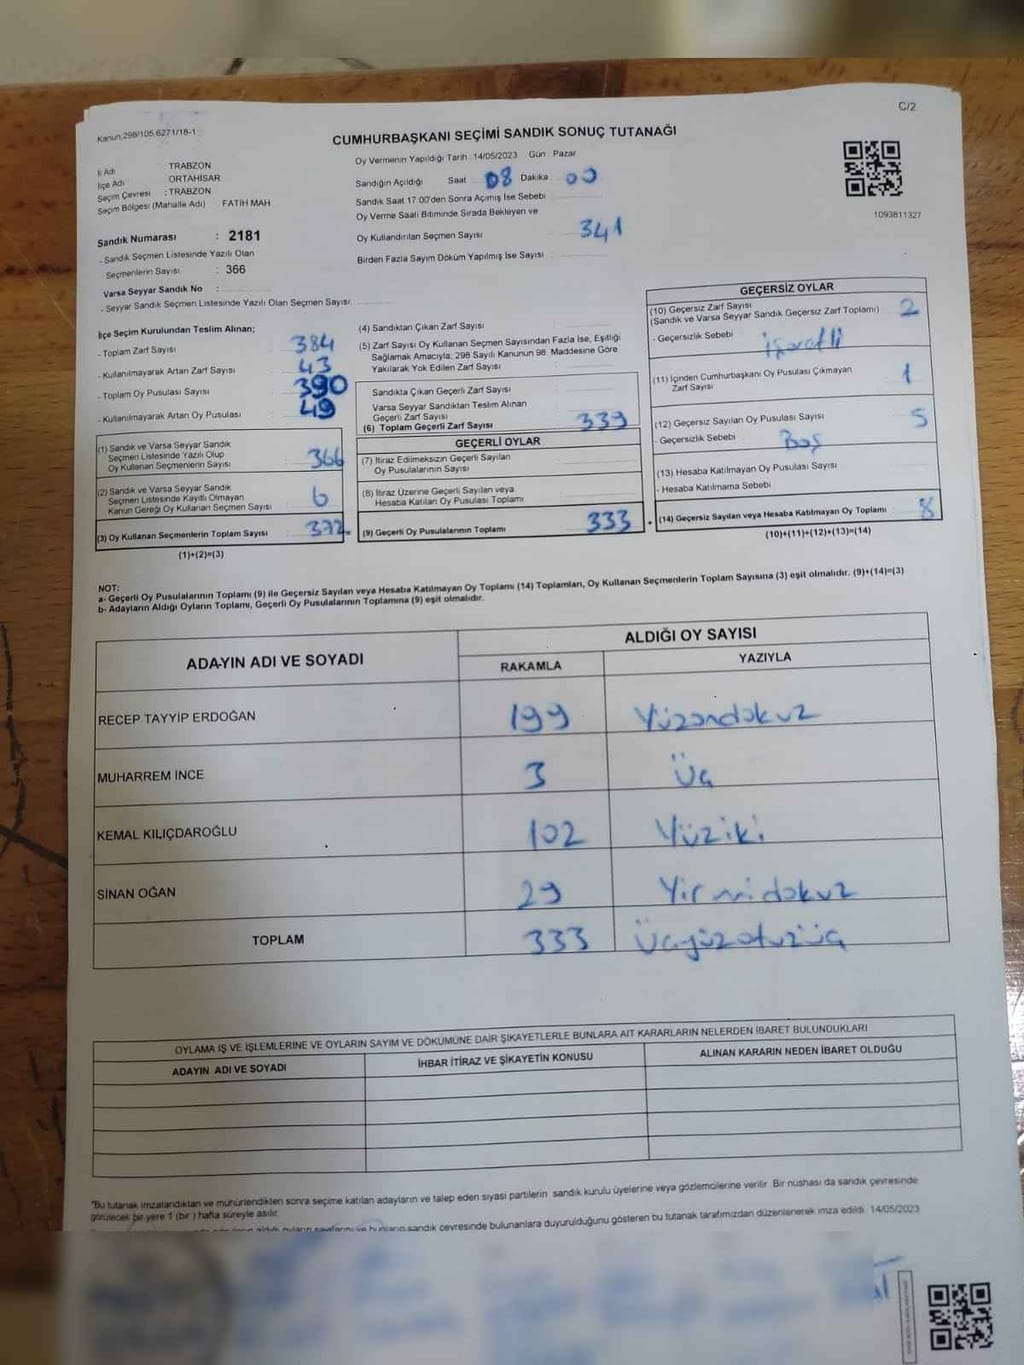 C/2
Kanun 298/105,6271/18-1
CUMHURBAŞKANI SEÇİMİ SANDIK SONUÇ TUTANAĞI
İl Adı : TRABZON
İlçe Adı ORTAHİSAR
Seçim Çevresi : TRABZON
Seçim Bölgesi (Mahalle Adı) FATİH MAH
Oy Vermenin Yapıldığı Tarih : 14/05/2023 Gün : Pazar
Sandığın Açıldığı Saat 08 Dakika 00
Sandık Saat 17:00'den Sonra Açılmış İse Sebebi
Oy Verme Saati Bitiminde Sırada Bekleyen ve
Oy Kullandırılan Seçmen Sayısı 341
Birden Fazla Sayım Döküm Yapılmış İse Sayısı :
1093811327
Sandık Numarası : 2181
- Sandık Seçmen Listesinde Yazılı Olan
Seçmenlerin Sayısı : 366
Varsa Seyyar Sandık No :
- Seyyar Sandık Seçmen Listesinde Yazılı Olan Seçmen Sayısı:
İlçe Seçim Kurulundan Teslim Alınan;
- Toplam Zarf Sayısı 384
- Kullanılmayarak Artan Zarf Sayısı 43
- Toplam Oy Pusulası Sayısı 390
- Kullanılmayarak Artan Oy Pusulası 49
(1) Sandık ve Varsa Seyyar Sandık
Seçmen Listesinde Yazılı Olup
Oy Kullanan Seçmenlerin Sayısı 366
(2) Sandık ve Varsa Seyyar Sandık
Seçmen Listesinde Kayıtlı Olmayan
Kanun Gereği Oy Kullanan Seçmen Sayısı 6
(3) Oy Kullanan Seçmenlerin Toplam Sayısı 372
(1)+(2)=(3)
(4) Sandıktan Çıkan Zarf Sayısı
(5) Zarf Sayısı Oy Kullanan Seçmen Sayısından Fazla İse, Eşitliği
Sağlamak Amacıyla; 298 Sayılı Kanunun 98. Maddesine Göre
Yakılarak Yok Edilen Zarf Sayısı
Sandıkta Çıkan Geçerli Zarf Sayısı
Varsa Seyyar Sandıktan Teslim Alınan
Geçerli Zarf Sayısı
(6) Toplam Geçerli Zarf Sayısı 339
GEÇERLİ OYLAR
(7) İtiraz Edilmeksizin Geçerli Sayılan
Oy Pusulalarının Sayısı
(8) İtiraz Üzerine Geçerli Sayılan veya
Hesaba Katılan Oy Pusulası Toplamı
(9) Geçerli Oy Pusulalarının Toplamı 333
GEÇERSİZ OYLAR
(10) Geçersiz Zarf Sayısı
(Sandık ve Varsa Seyyar Sandık Geçersiz Zarf Toplamı) 2
- Geçersizlik Sebebi işaretli
(11) İçinden Cumhurbaşkanı Oy Pusulası Çıkmayan
Zarf Sayısı 1
(12) Geçersiz Sayılan Oy Pusulası Sayısı 5
- Geçersizlik Sebebi Boş
(13) Hesaba Katılmayan Oy Pusulası Sayısı
- Hesaba Katılmama Sebebi
(14) Geçersiz Sayılan veya Hesaba Katılmayan Oy Toplamı 8
(10)+(11)+(12)+(13)=(14)
NOT:
a- Geçerli Oy Pusulalarının Toplamı (9) ile Geçersiz Sayılan veya Hesaba Katılmayan Oy Toplamı (14) Toplamları, Oy Kullanan Seçmenlerin Toplam Sayısına (3) eşit olmalıdır. (9)+(14)=(3)
b- Adayların Aldığı Oyların Toplamı, Geçerli Oy Pusulalarının Toplamına (9) eşit olmalıdır.
ADAYIN ADI VE SOYADI ALDIĞI OY SAYISI
RAKAMLA YAZIYLA
RECEP TAYYİP ERDOĞAN 199 Yüzondokuz
MUHARREM İNCE 3 Üç
KEMAL KILIÇDAROĞLU 102 Yüziki
SİNAN OĞAN 29 Yirmidokuz
TOPLAM 333 Üçyüzotuzüç
OYLAMA İŞ VE İŞLEMLERİNE VE OYLARIN SAYIM VE DÖKÜMÜNE DAİR ŞİKAYETLERLE BUNLARA AİT KARARLARIN NELERDEN İBARET BULUNDUKLARI
ADAYIN ADI VE SOYADI İHBAR İTİRAZ VE ŞİKAYETİN KONUSU ALINAN KARARIN NEDEN İBARET OLDUĞU
"Bu tutanak imzalandıktan ve mühürlendikten sonra seçime katılan adayların ve talep eden siyasi partilerin sandık kurulu üyelerine veya gözlemcilerine verilir. Bir nüshası da sandık çevresinde
görülecek bir yere 1 (bir ) hafta süreyle asılır.
aldığı oyların sayılarını ve bunların sandık çevresinde bulunanlara duyurulduğunu gösteren bu tutanak tarafımızdan düzenlenerek imza edildi. 14/05/2023